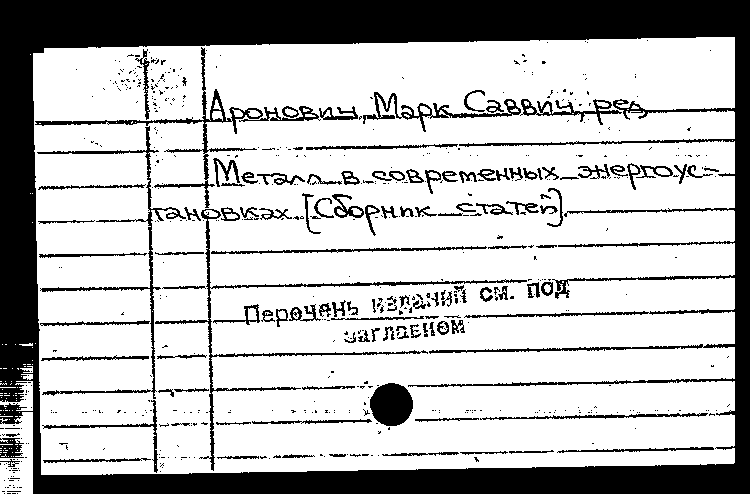 Аронович, Марк Саввич, ред.
Металл в современных энергоус-
тановках. [Сборник статей].
Перечень изданий см. под
заглавием